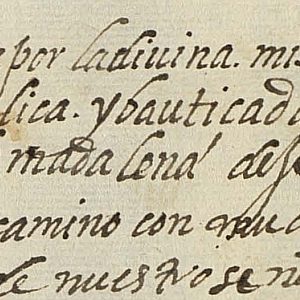 por ladiuina. mis
lica. ybauticada
madalena des
camino con mud
de nuestro señ